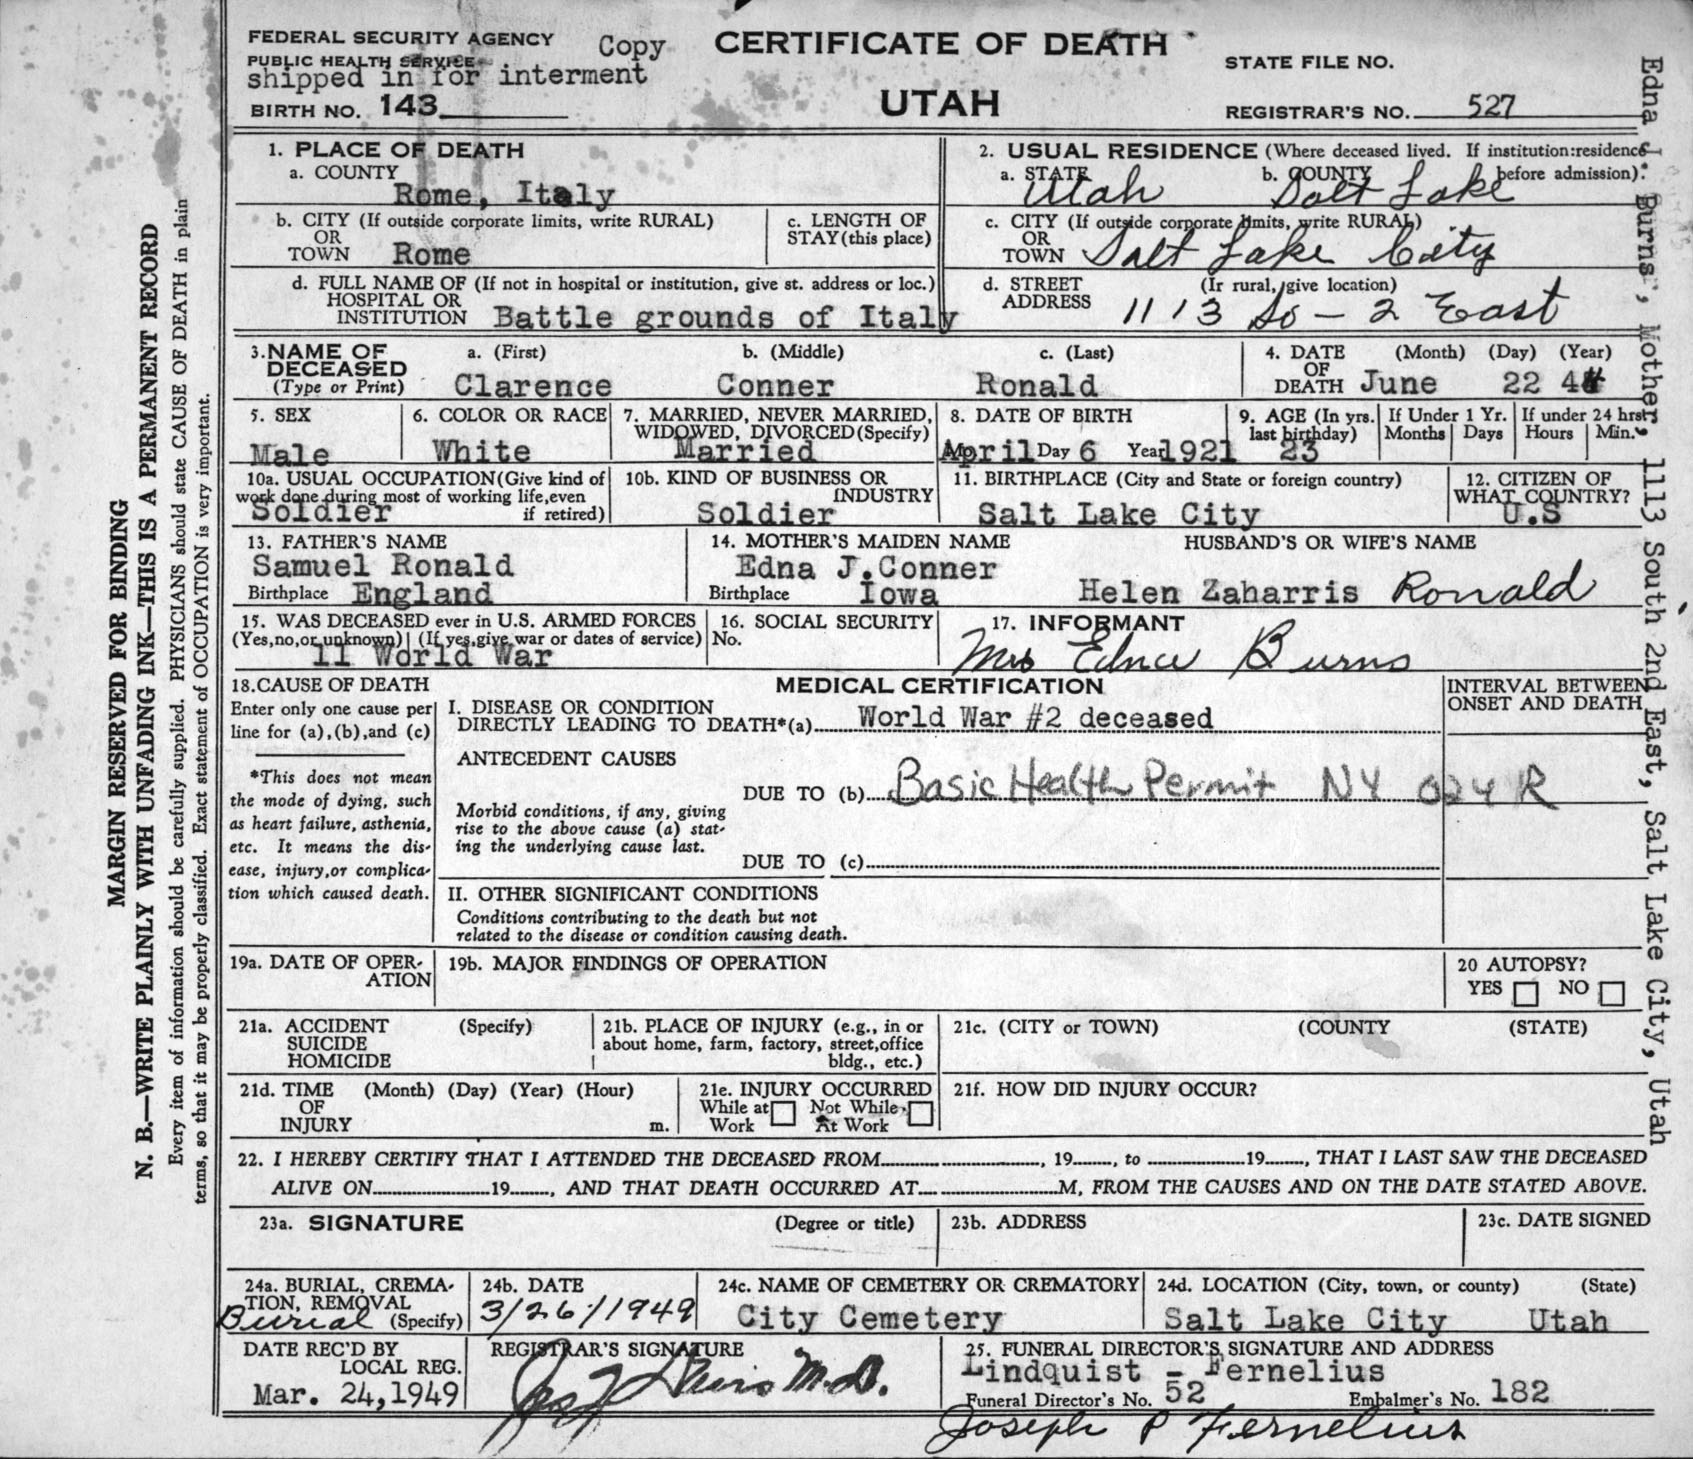 FEDERAL SECURITY AGENCY Copy
PUBLIC HEALTH SERVICE
shipped in for interment
BIRTH NO. 143
CERTIFICATE OF DEATH
UTAH
STATE FILE NO.
REGISTRAR'S NO. 527
1. PLACE OF DEATH
a. COUNTY
Rome, Italy
b. CITY (If outside corporate limits, write RURAL)
OR
TOWN Rome
c. LENGTH OF
STAY (this place)
d. FULL NAME OF (If not in hospital or institution, give st. address or loc.)
HOSPITAL OR
INSTITUTION Battle grounds of Italy
2. USUAL RESIDENCE (Where deceased lived. If institution:residence
before admission).
a. STATE Utah b. COUNTY Salt Lake
c. CITY (If outside corporate limits, write RURAL)
OR
TOWN Salt Lake City
d. STREET (Ir rural, give location)
ADDRESS 1113 So - 2 East
3. NAME OF
DECEASED
(Type or Print)
a. (First) b. (Middle) c. (Last)
Clarence Conner Ronald
4. DATE (Month) (Day) (Year)
OF
DEATH June 22 44
5. SEX
Male
6. COLOR OR RACE
White
7. MARRIED, NEVER MARRIED,
WIDOWED, DIVORCED (Specify)
Married
8. DATE OF BIRTH
Mo. April Day 6 Year 1921
9. AGE (In yrs.
last birthday)
23
If Under 1 Yr.
Months Days
If under 24 hrs.
Hours Min.
10a. USUAL OCCUPATION (Give kind of
work done during most of working life, even
if retired)
Soldier
10b. KIND OF BUSINESS OR
INDUSTRY
Soldier
11. BIRTHPLACE (City and State or foreign country)
Salt Lake City
12. CITIZEN OF
WHAT COUNTRY?
U.S
13. FATHER'S NAME
Samuel Ronald
Birthplace England
14. MOTHER'S MAIDEN NAME
Edna J. Conner
Birthplace Iowa
HUSBAND'S OR WIFE'S NAME
Helen Zaharris Ronald
15. WAS DECEASED ever in U.S. ARMED FORCES
(Yes, no, or unknown) (If yes, give war or dates of service)
11 World War
16. SOCIAL SECURITY
No.
17. INFORMANT
Mrs Edna Burns
18. CAUSE OF DEATH
Enter only one cause per
line for (a), (b), and (c)
*This does not mean
the mode of dying, such
as heart failure, asthenia,
etc. It means the dis-
ease, injury, or complica-
tion which caused death.
MEDICAL CERTIFICATION
I. DISEASE OR CONDITION
DIRECTLY LEADING TO DEATH*(a) World War #2 deceased
ANTECEDENT CAUSES
DUE TO (b) Basic Health Permit NY 024 R
Morbid conditions, if any, giving
rise to the above cause (a) stat-
ing the underlying cause last.
DUE TO (c)
II. OTHER SIGNIFICANT CONDITIONS
Conditions contributing to the death but not
related to the disease or condition causing death.
INTERVAL BETWEEN
ONSET AND DEATH
19a. DATE OF OPER-
ATION
19b. MAJOR FINDINGS OF OPERATION
20 AUTOPSY?
YES NO
21a. ACCIDENT (Specify)
SUICIDE
HOMICIDE
21b. PLACE OF INJURY (e.g., in or
about home, farm, factory, street, office
bldg., etc.)
21c. (CITY or TOWN) (COUNTY (STATE)
21d. TIME (Month) (Day) (Year) (Hour)
OF
INJURY m.
21e. INJURY OCCURRED
While at Not While
Work At Work
21f. HOW DID INJURY OCCUR?
22. I HEREBY CERTIFY THAT I ATTENDED THE DECEASED FROM , 19 , to 19 , THAT I LAST SAW THE DECEASED
ALIVE ON 19 , AND THAT DEATH OCCURRED AT M, FROM THE CAUSES AND ON THE DATE STATED ABOVE.
23a. SIGNATURE (Degree or title)
23b. ADDRESS
23c. DATE SIGNED
24a. BURIAL, CREMA-
TION, REMOVAL
Burial (Specify)
24b. DATE
3/26/1949
24c. NAME OF CEMETERY OR CREMATORY
City Cemetery
24d. LOCATION (City, town, or county) (State)
Salt Lake City Utah
DATE REC'D BY
LOCAL REG.
Mar. 24,1949
REGISTRAR'S SIGNATURE
M.D.
25. FUNERAL DIRECTOR'S SIGNATURE AND ADDRESS
Lindquist - Fernelius
Funeral Director's No. 52 Embalmer's No. 182
Joseph P Fernelius
MARGIN RESERVED FOR BINDING
N. B.—WRITE PLAINLY WITH UNFADING INK—THIS IS A PERMANENT RECORD
Every item of information should be carefully supplied. PHYSICIANS should state CAUSE OF DEATH in plain
terms, so that it may be properly classified. Exact statement of OCCUPATION is very important.
Edna J. Burns, Mother, 1113 South 2nd East, Salt Lake City, Utah